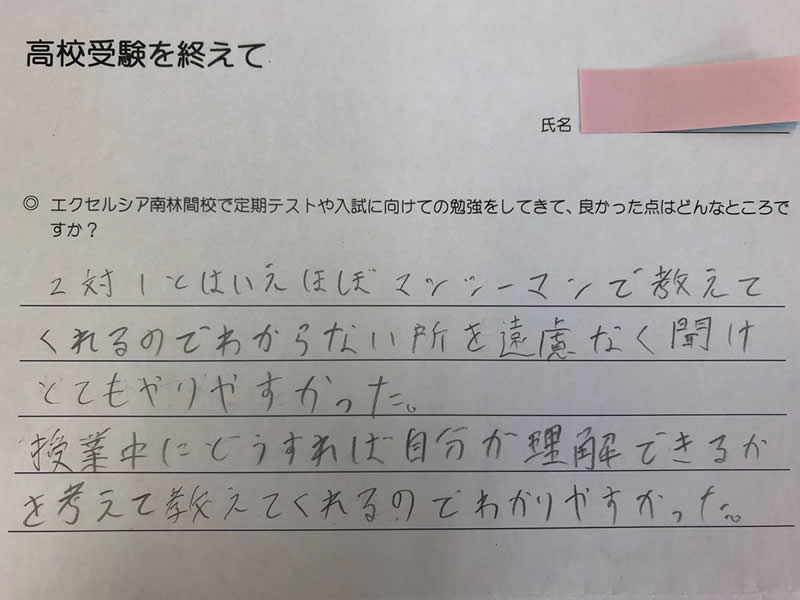 高校受験を終えて
氏名
◎ エクセルシア南林間校で定期テストや入試に向けての勉強をしてきて、良かった点はどんなところで
すか？
2対1とはいえほぼマンツーマンで教えて
くれるのでわからない所を遠慮なく聞け
とてもやりやすかった。
授業中にどうすれば自分が理解できるか
を考えて教えてくれるのでわかりやすかった。